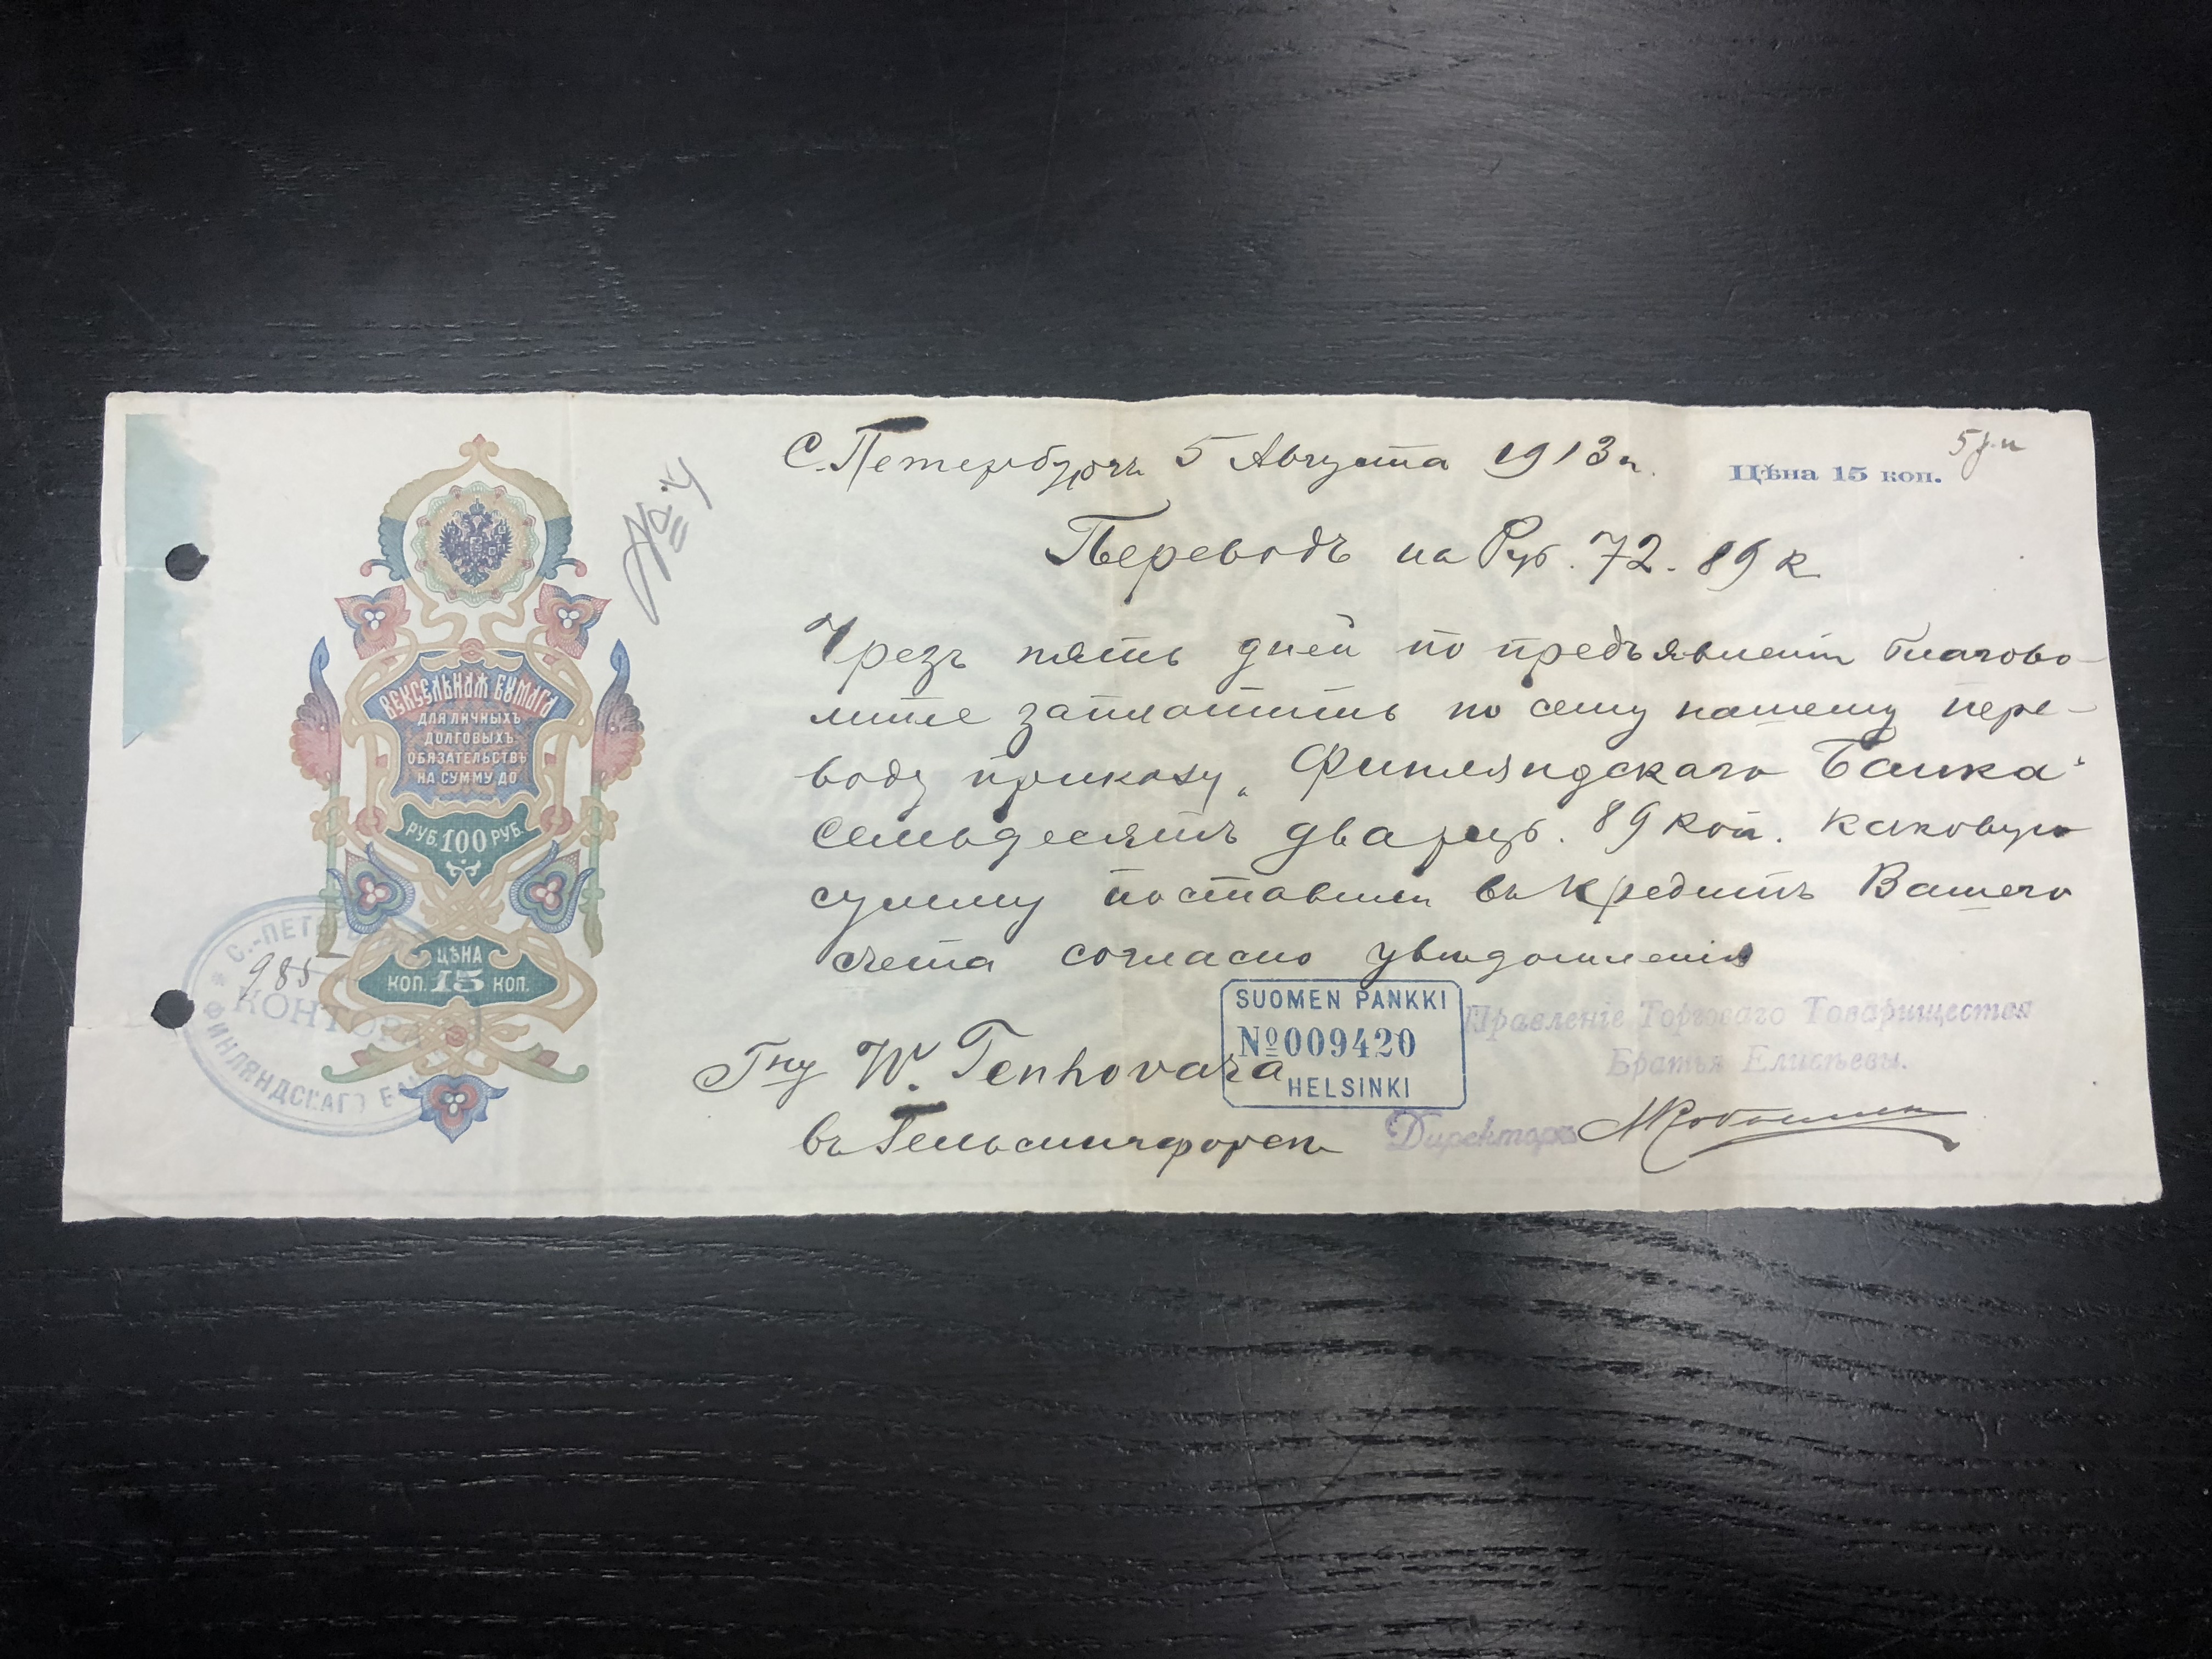 С. Петербургъ 5 Августа 1913 г.
Цѣна 15 коп.
Переводъ на Руб. 72. 89 к
Чрезъ пять дней по предъявленiи благово-
лите заплатить по сему нашему пере-
воду приказу „Финляндскаго Банка"
Семьдесятъ два руб. 89 коп. каковую
сумму поставили въ кредитъ Вашего
счета согласно увѣдомленiя
Гну W. Tenhovara
въ Гельсингфорсѣ
SUOMEN PANKKI
№ 009420
HELSINKI
Правленіе Торговаго Товарищества
Братья Елисѣевы.
Директоръ
ВЕКСЕЛЬНАЯ БУМАГА
ДЛЯ ЛИЧНЫХЪ
ДОЛГОВЫХЪ
ОБЯЗАТЕЛЬСТВЪ
НА СУММУ ДО
РУБ. 100 РУБ.
ЦѢНА
КОП. 15 КОП.
С.-ПЕТЕРБ
985
КОНТОРА
ФИНЛЯНДСКАГО БАН